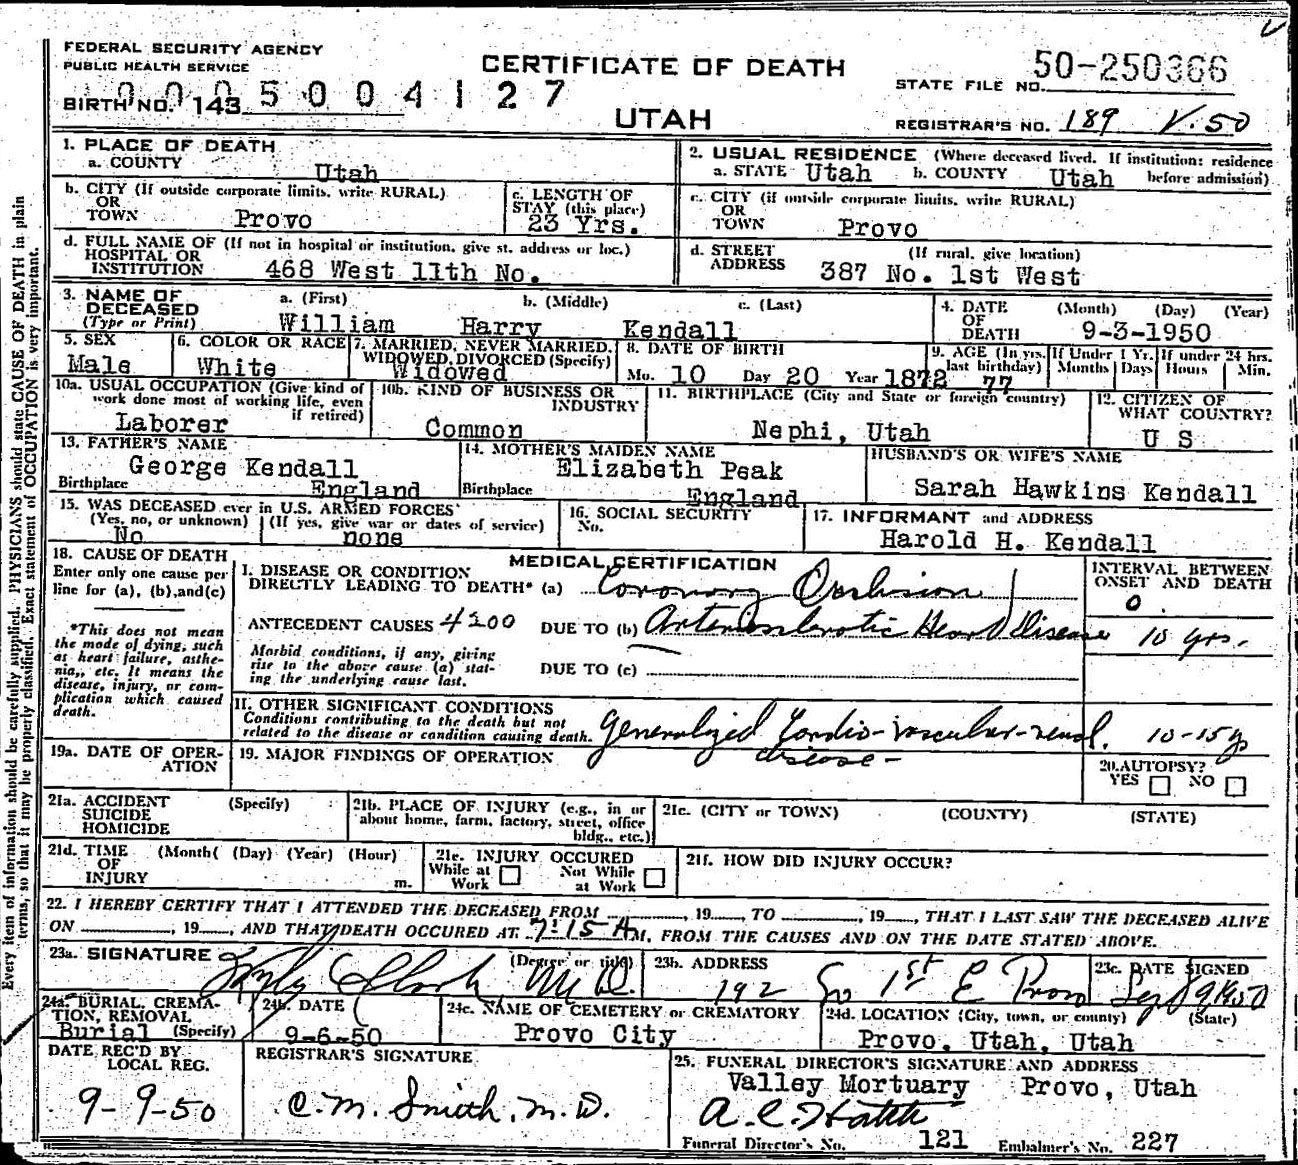 FEDERAL SECURITY AGENCY
PUBLIC HEALTH SERVICE
CERTIFICATE OF DEATH
UTAH
STATE FILE NO. 50-250366
BIRTH NO. 143
0005004127
REGISTRAR'S NO. 189 V. 50
1. PLACE OF DEATH
a. COUNTY Utah
b. CITY (If outside corporate limits, write RURAL)
OR
TOWN Provo
c. LENGTH OF
STAY (this place)
23 Yrs.
d. FULL NAME OF (If not in hospital or institution, give st. address or loc.)
HOSPITAL OR
INSTITUTION 468 West 11th No.
2. USUAL RESIDENCE (Where deceased lived. If institution: residence
before admission)
a. STATE Utah b. COUNTY Utah
c. CITY (if outside corporate limits, write RURAL)
OR
TOWN Provo
d. STREET (If rural, give location)
ADDRESS 387 No. 1st West
3. NAME OF
DECEASED
(Type or Print)
a. (First) b. (Middle) c. (Last)
William Harry Kendall
4. DATE (Month) (Day) (Year)
OF
DEATH 9-3-1950
5. SEX
Male
6. COLOR OR RACE
White
7. MARRIED, NEVER MARRIED,
WIDOWED, DIVORCED (Specify)
Widowed
8. DATE OF BIRTH
Mo. 10 Day 20 Year 1872
9. AGE (In yrs.
last birthday)
77
If Under 1 Yr.
Months Days
If under 24 hrs.
Hours Min.
10a. USUAL OCCUPATION (Give kind of
work done most of working life, even
if retired)
Laborer
10b. KIND OF BUSINESS OR
INDUSTRY
Common
11. BIRTHPLACE (City and State or foreign country)
Nephi, Utah
12. CITIZEN OF
WHAT COUNTRY?
U S
13. FATHER'S NAME
George Kendall
Birthplace England
14. MOTHER'S MAIDEN NAME
Elizabeth Peak
Birthplace England
HUSBAND'S OR WIFE'S NAME
Sarah Hawkins Kendall
15. WAS DECEASED ever in U.S. ARMED FORCES
(Yes, no, or unknown) (If yes, give war or dates of service)
No none
16. SOCIAL SECURITY
No.
17. INFORMANT and ADDRESS
Harold H. Kendall
18. CAUSE OF DEATH
Enter only one cause per
line for (a), (b), and (c)
*This does not mean
the mode of dying, such
as heart failure, asthe-
nia,, etc. It means the
disease, injury, or com-
plication which caused
death.
MEDICAL CERTIFICATION
I. DISEASE OR CONDITION
DIRECTLY LEADING TO DEATH* (a) Coronary Occlusion
ANTECEDENT CAUSES 4200 DUE TO (b) Arteriosclerotic Heart Disease
Morbid conditions, if any, giving
rise to the above cause (a) stat-
ing the underlying cause last.
DUE TO (c)
INTERVAL BETWEEN
ONSET AND DEATH
0.
10 yrs.
II. OTHER SIGNIFICANT CONDITIONS
Conditions contributing to the death but not
related to the disease or condition causing death.
Generalized Cardio-vascular-renal
disease - 10-15 y
19a. DATE OF OPER-
ATION
19. MAJOR FINDINGS OF OPERATION
20. AUTOPSY?
YES NO
21a. ACCIDENT (Specify)
SUICIDE
HOMICIDE
21b. PLACE OF INJURY (e.g., in or
about home, farm, factory, street, office
bldg., etc.)
21c. (CITY or TOWN) (COUNTY) (STATE)
21d. TIME (Month( (Day) (Year) (Hour)
OF
INJURY m.
21e. INJURY OCCURED
While at Work Not While at Work
21f. HOW DID INJURY OCCUR?
22. I HEREBY CERTIFY THAT I ATTENDED THE DECEASED FROM , 19 , TO , 19 , THAT I LAST SAW THE DECEASED ALIVE
ON , 19 , AND THAT DEATH OCCURED AT 7:15 A M, FROM THE CAUSES AND ON THE DATE STATED ABOVE.
23a. SIGNATURE (Degree or title)
Clark M.D.
23b. ADDRESS
192 So 1st E Provo
23c. DATE SIGNED
Sep 9 1950
24a. BURIAL, CREMA-
TION, REMOVAL
Burial (Specify)
24b. DATE
9-6-50
24c. NAME OF CEMETERY or CREMATORY
Provo City
24d. LOCATION (City, town, or county) (State)
Provo, Utah, Utah
DATE REC'D BY
LOCAL REG.
9-9-50
REGISTRAR'S SIGNATURE
C. M. Smith, M. D.
25. FUNERAL DIRECTOR'S SIGNATURE AND ADDRESS
Valley Mortuary Provo, Utah
A. C. Hatch
Funeral Director's No. 121 Embalmer's No. 227
Every item of information should be carefully supplied. PHYSICIANS should state CAUSE OF DEATH in plain
terms, so that it may be properly classified. Exact statement of OCCUPATION is very important.